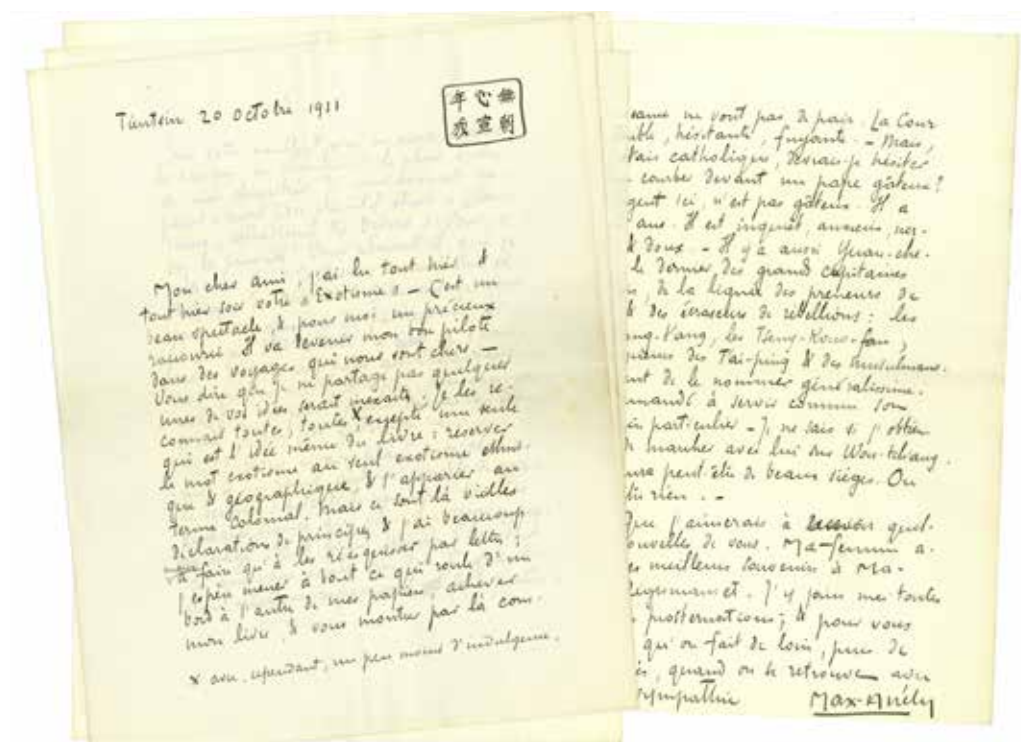 Tientsin 20 octobre 1911
年心無
宣朝
Mon cher ami, j'ai lu tout hier &
tout hier soir votre « Exotisme » – C'est un
beau spectacle, & pour moi, un précieux
raccourci. Il va devenir mon bon pilote
dans des voyages qui nous sont chers –
Vous dire que je ne partage pas quelques
unes de vos idées serait inexact. Je les re-
connais toutes, toutes x, excepté une seule
qui est l'idée même du livre : réserver
le mot exotisme au seul exotisme ethni-
que & géographique, & l'apparier au
terme Colonial. Mais ce sont là vieilles
déclarations de principes & j'ai beaucoup
à faire qu'à les réesquisser par lettre :
J'espère mener à bout ce qui roule d'un
bord à l'autre de mes papiers, achever
mon livre & vous montrer par là com-
x avec, cependant, un peu moins d'indulgence.
ne vont pas de pair. La Cour
hésitante, fuyante. – Mais,
catholique, devrais-je hésiter
courber devant un pape gâteux ?
gent ici, n'est pas gâteux. Il a
ans. Il est inquiet, anxieux, ner-
& doux – Il y a aussi Yuan-che-
le dernier des grands capitaines
, de la lignée des preneurs de
& des écraseurs de rébellions : les
ng-Yang, les Tseng-Kouo-fan,
des Tai-ping & des musulmans.
nt de le nommer généralissime.
mandé à servir comme son
in particulier – Je ne sais si j'obtien-
de marcher avec lui sur Wou-tchang.
ura peut-être de beaux sièges. Ou
rien. –
Que j'aimerais à quel-
ouvelles de vous. Ma femme a-
es meilleurs souvenirs à Ma-
J'y joins mes toutes
prosternations ; & pour vous
qu'on fait de loin, puis de
ès, quand on se retrouve avec
sympathie
Max-Anély